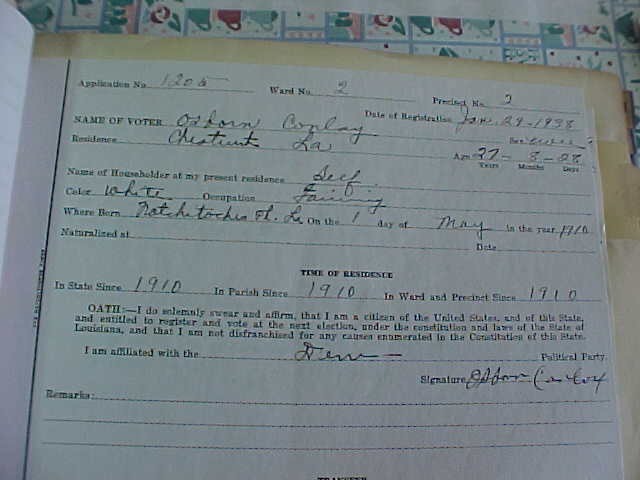 Application No. 1205 Ward No. 2 Precinct No. 2
Date of Registration Jan. 29-1938
NAME OF VOTER Osborn Conlay
Residence Chestnut La Sex
Age 27 - 8 - 28
Years Months Days
Name of Householder at my present residence Self
Color White Occupation Farming
Where Born Natchitoches Ph. La On the 1 day of May in the year 1910
Naturalized at Date
TIME OF RESIDENCE
In State Since 1910 In Parish Since 1910 In Ward and Precinct Since 1910
OATH:—I do solemnly swear and affirm, that I am a citizen of the United States, and of this State,
and entitled to register and vote at the next election, under the constitution and laws of the State of
Louisiana, and that I am not disfranchised for any causes enumerated in the Constitution of this State.
I am affiliated with the Dem — Political Party.
Signature Osborn Conlay
Remarks:
TRANSFER